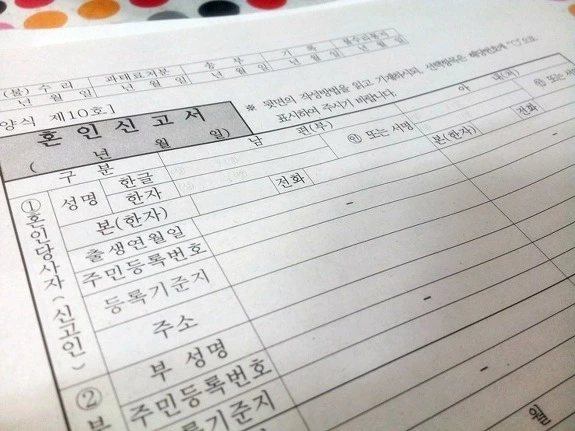 (불) 수 리 과태료처분 송 부 기 록 불수리통지
년 월 일 년 월 일 년 월 일 년 월 일 년 월 일
양식 제10호]
혼 인 신 고 서
( 년 월 일)
※ 뒷면의 작성방법을 읽고 기재하시되, 선택항목은 해당번호에 "○"으로
표시하여 주시기 바랍니다.
구 분 남 편(부) 아 내(처)
①혼인당사자(신고인)
성명 한글 ㊞ 또는 서명 ㊞ 또는 서
한자
본(한자) 전화 본(한자) 전화
출생연월일
주민등록번호 - -
등록기준지
주소
부 성명
②부
주민등록번호 - -
등록기준지